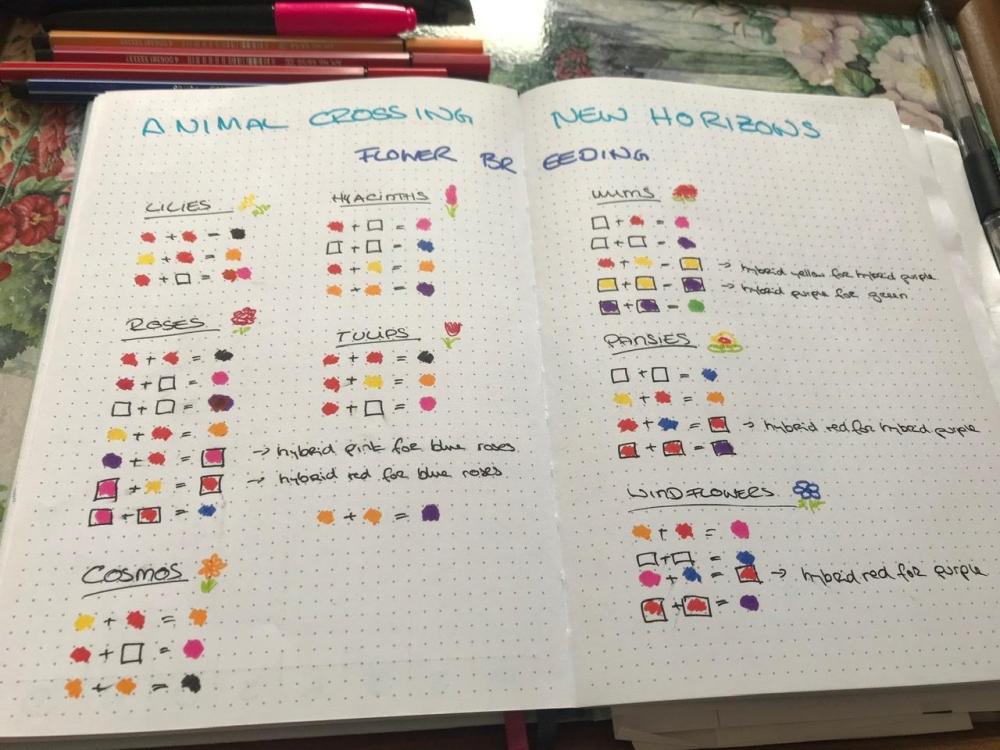 ANIMAL CROSSING NEW HORIZONS
FLOWER BREEDING
LILIES
+ =
+ =
+ =
HYACINTHS
+ =
+ =
+ =
+ =
ROSES
+ =
+ =
+ =
+ =
+ =
→ hybrid pink for blue roses
+ =
→ hybrid red for blue roses
+ =
TULIPS
+ =
+ =
+ =
+ =
COSMOS
+ =
+ =
+ =
MUMS
+ =
+ =
+ =
→ hybrid yellow for hybrid purple
+ =
→ hybrid purple for green
+ =
PANSIES
+ =
+ =
+ =
→ hybrid red for hybrid purple
+ =
WINDFLOWERS
+ =
+ =
+ =
→ hybrid red for purple
+ =